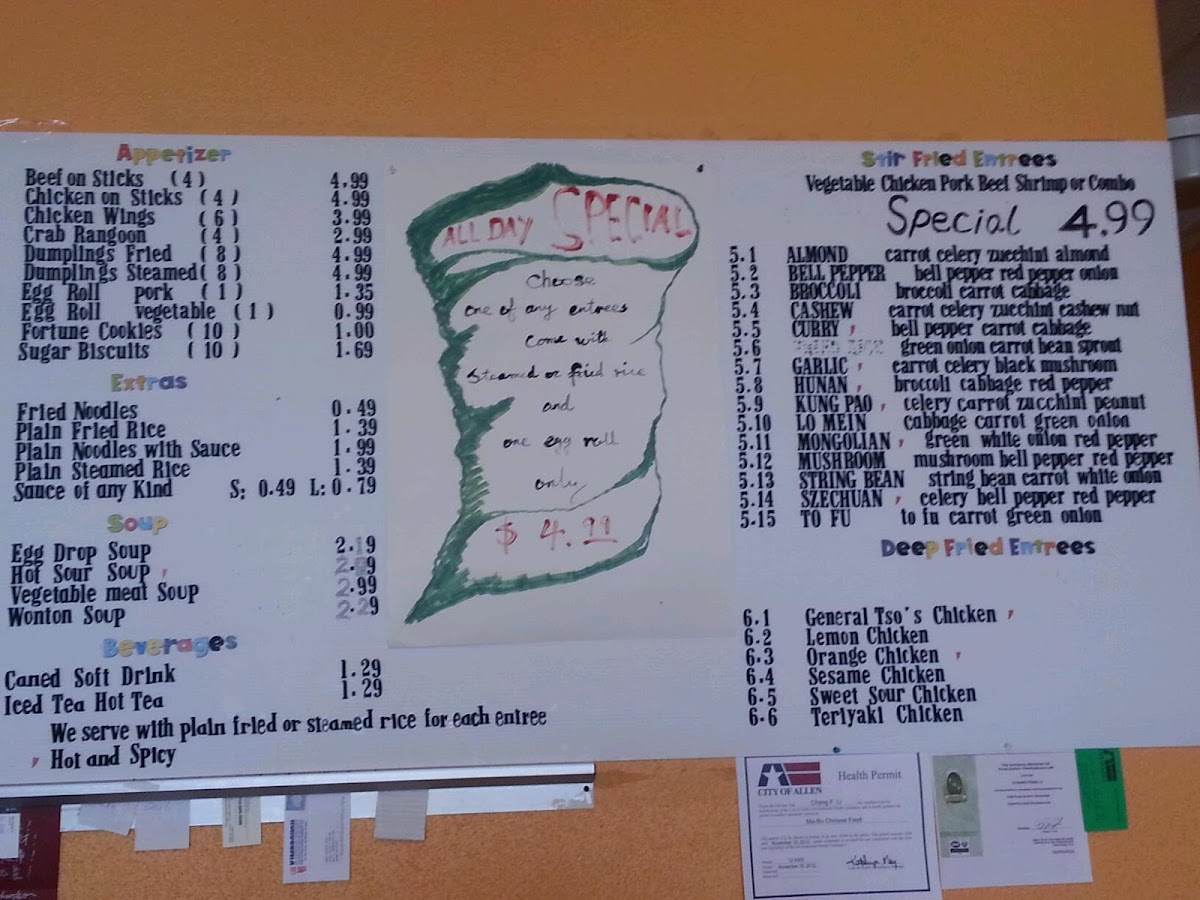 Appetizer
Beef on Sticks (4) 4.99
Chicken on Sticks (4) 4.99
Chicken Wings (6) 3.99
Crab Rangoon (4) 2.99
Dumplings Fried (8) 4.99
Dumplings Steamed (8) 4.99
Egg Roll pork (1) 1.35
Egg Roll vegetable (1) 0.99
Fortune Cookies (10) 1.00
Sugar Biscuits (10) 1.69
Extras
Fried Noodles 0.49
Plain Fried Rice 1.39
Plain Noodles with Sauce 1.99
Plain Steamed Rice 1.39
Sauce of any Kind S: 0.49 L: 0.79
Soup
Egg Drop Soup 2.19
Hot Sour Soup
Vegetable meat Soup 2.99
Wonton Soup 2.29
Beverages
Caned Soft Drink 1.29
Iced Tea Hot Tea 1.29
We serve with plain fried or steamed rice for each entree
Hot and Spicy
ALL DAY SPECIAL
Choose
one of any entrees
come with
steamed or fried rice
and
one egg roll
only
$ 4.99
Stir Fried Entrees
Vegetable Chicken Pork Beef Shrimp or Combo
Special 4.99
5.1 ALMOND carrot celery zucchini almond
5.2 BELL PEPPER bell pepper red pepper onion
5.3 BROCCOLI broccoli carrot cabbage
5.4 CASHEW carrot celery zucchini cashew nut
5.5 CURRY bell pepper carrot cabbage
5.6 green onion carrot bean sprout
5.7 GARLIC carrot celery black mushroom
5.8 HUNAN broccoli cabbage red pepper
5.9 KUNG PAO celery carrot zucchini peanut
5.10 LO MEIN cabbage carrot green onion
5.11 MONGOLIAN green white onion red pepper
5.12 MUSHROOM mushroom bell pepper red pepper
5.13 STRING BEAN string bean carrot white onion
5.14 SZECHUAN celery bell pepper red pepper
5.15 TO FU to fu carrot green onion
Deep Fried Entrees
6.1 General Tso's Chicken
6.2 Lemon Chicken
6.3 Orange Chicken
6.4 Sesame Chicken
6.5 Sweet Sour Chicken
6.6 Teriyaki Chicken
CITY OF ALLEN
Health Permit